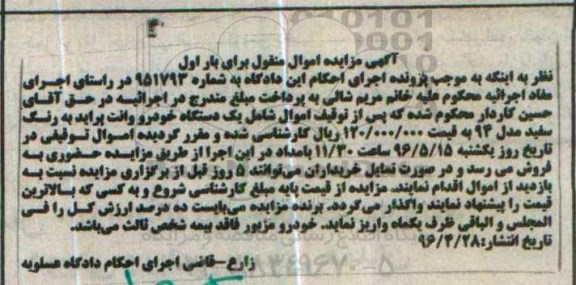 آگهی مزایده اموال منقول برای بار اول
نظر به اینکه به موجب پرونده اجرای احکام این دادگاه به شماره ۹۵۱۷۹۳ در راستای اجرای
مفاد اجرائیه محکوم علیه خانم مریم شالی به پرداخت مبلغ مندرج در اجرائیه در حق آقای
حسین کاردار محکوم شده که پس از توقیف اموال شامل یک دستگاه خودرو وانت پراید به رنگ
سفید مدل ۹۴ به قیمت ۱۲۰/۰۰۰/۰۰۰ ریال کارشناسی شده و مقرر گردیده اموال توقیفی در
تاریخ روز یکشنبه ۹۶/۵/۱۵ ساعت ۱۱/۳۰ بامداد در این اجرا از طریق مزایده حضوری به
فروش می رسد و در صورت تمایل خریداران می‌توانند ۵ روز قبل از برگزاری مزایده نسبت به
بازدید از اموال اقدام نمایند. مزایده از قیمت پایه مبلغ کارشناسی شروع و به کسی که بالاترین
قیمت را پیشنهاد نمایند واگذار می‌گردد. برنده مزایده می‌بایست ده درصد ارزش کل را فی
المجلس و الباقی ظرف یکماه واریز نماید. خودرو مزبور فاقد بیمه شخص ثالث می‌باشد.
تاریخ انتشار: ۹۶/۴/۲۸
زارع-قاضی اجرای احکام دادگاه عسلویه